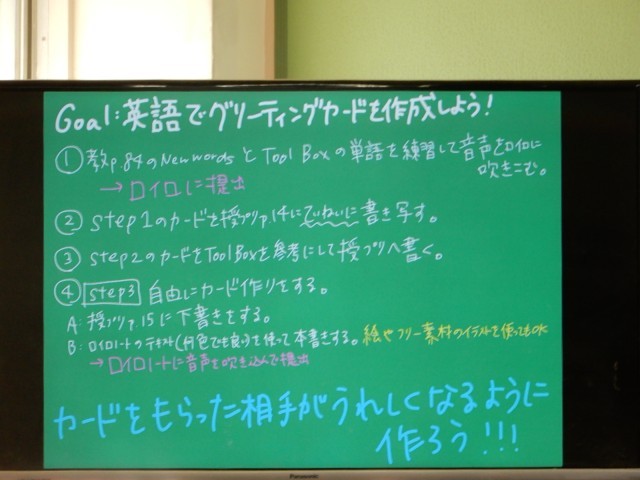 Goal:英語でグリーティングカードを作成しよう!
① 教p.84のNew wordsとTool Boxの単語を練習して音声をロイロに
吹きこむ。
→ロイロに提出
② step1のカードを授プリp.14にていねいに書き写す。
③ step2のカードをTool Boxを参考にして授プリへ書く。
④ step3 自由にカード作りをする。
A:授プリp.15に下書きをする。
B:ロイロノートのテキスト(何色でも良い)を使って本書きする。絵やフリー素材のイラストを使ってもOK
→ロイロノートに音声を吹き込んで提出
カードをもらった相手がうれしくなるように
作ろう!!!
Panasonic